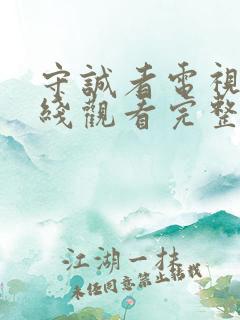 守誠者電視
綫觀看完整
江湖一挂
未经同意禁止转载